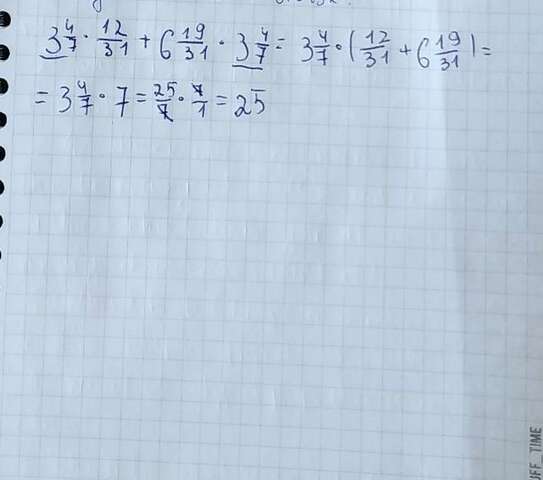 3 4/7 · 12/31 + 6 19/31 · 3 4/7 = 3 4/7 · (12/31 + 6 19/31) =
= 3 4/7 · 7 = 25/7 · 7/1 = 25
UFF TIME